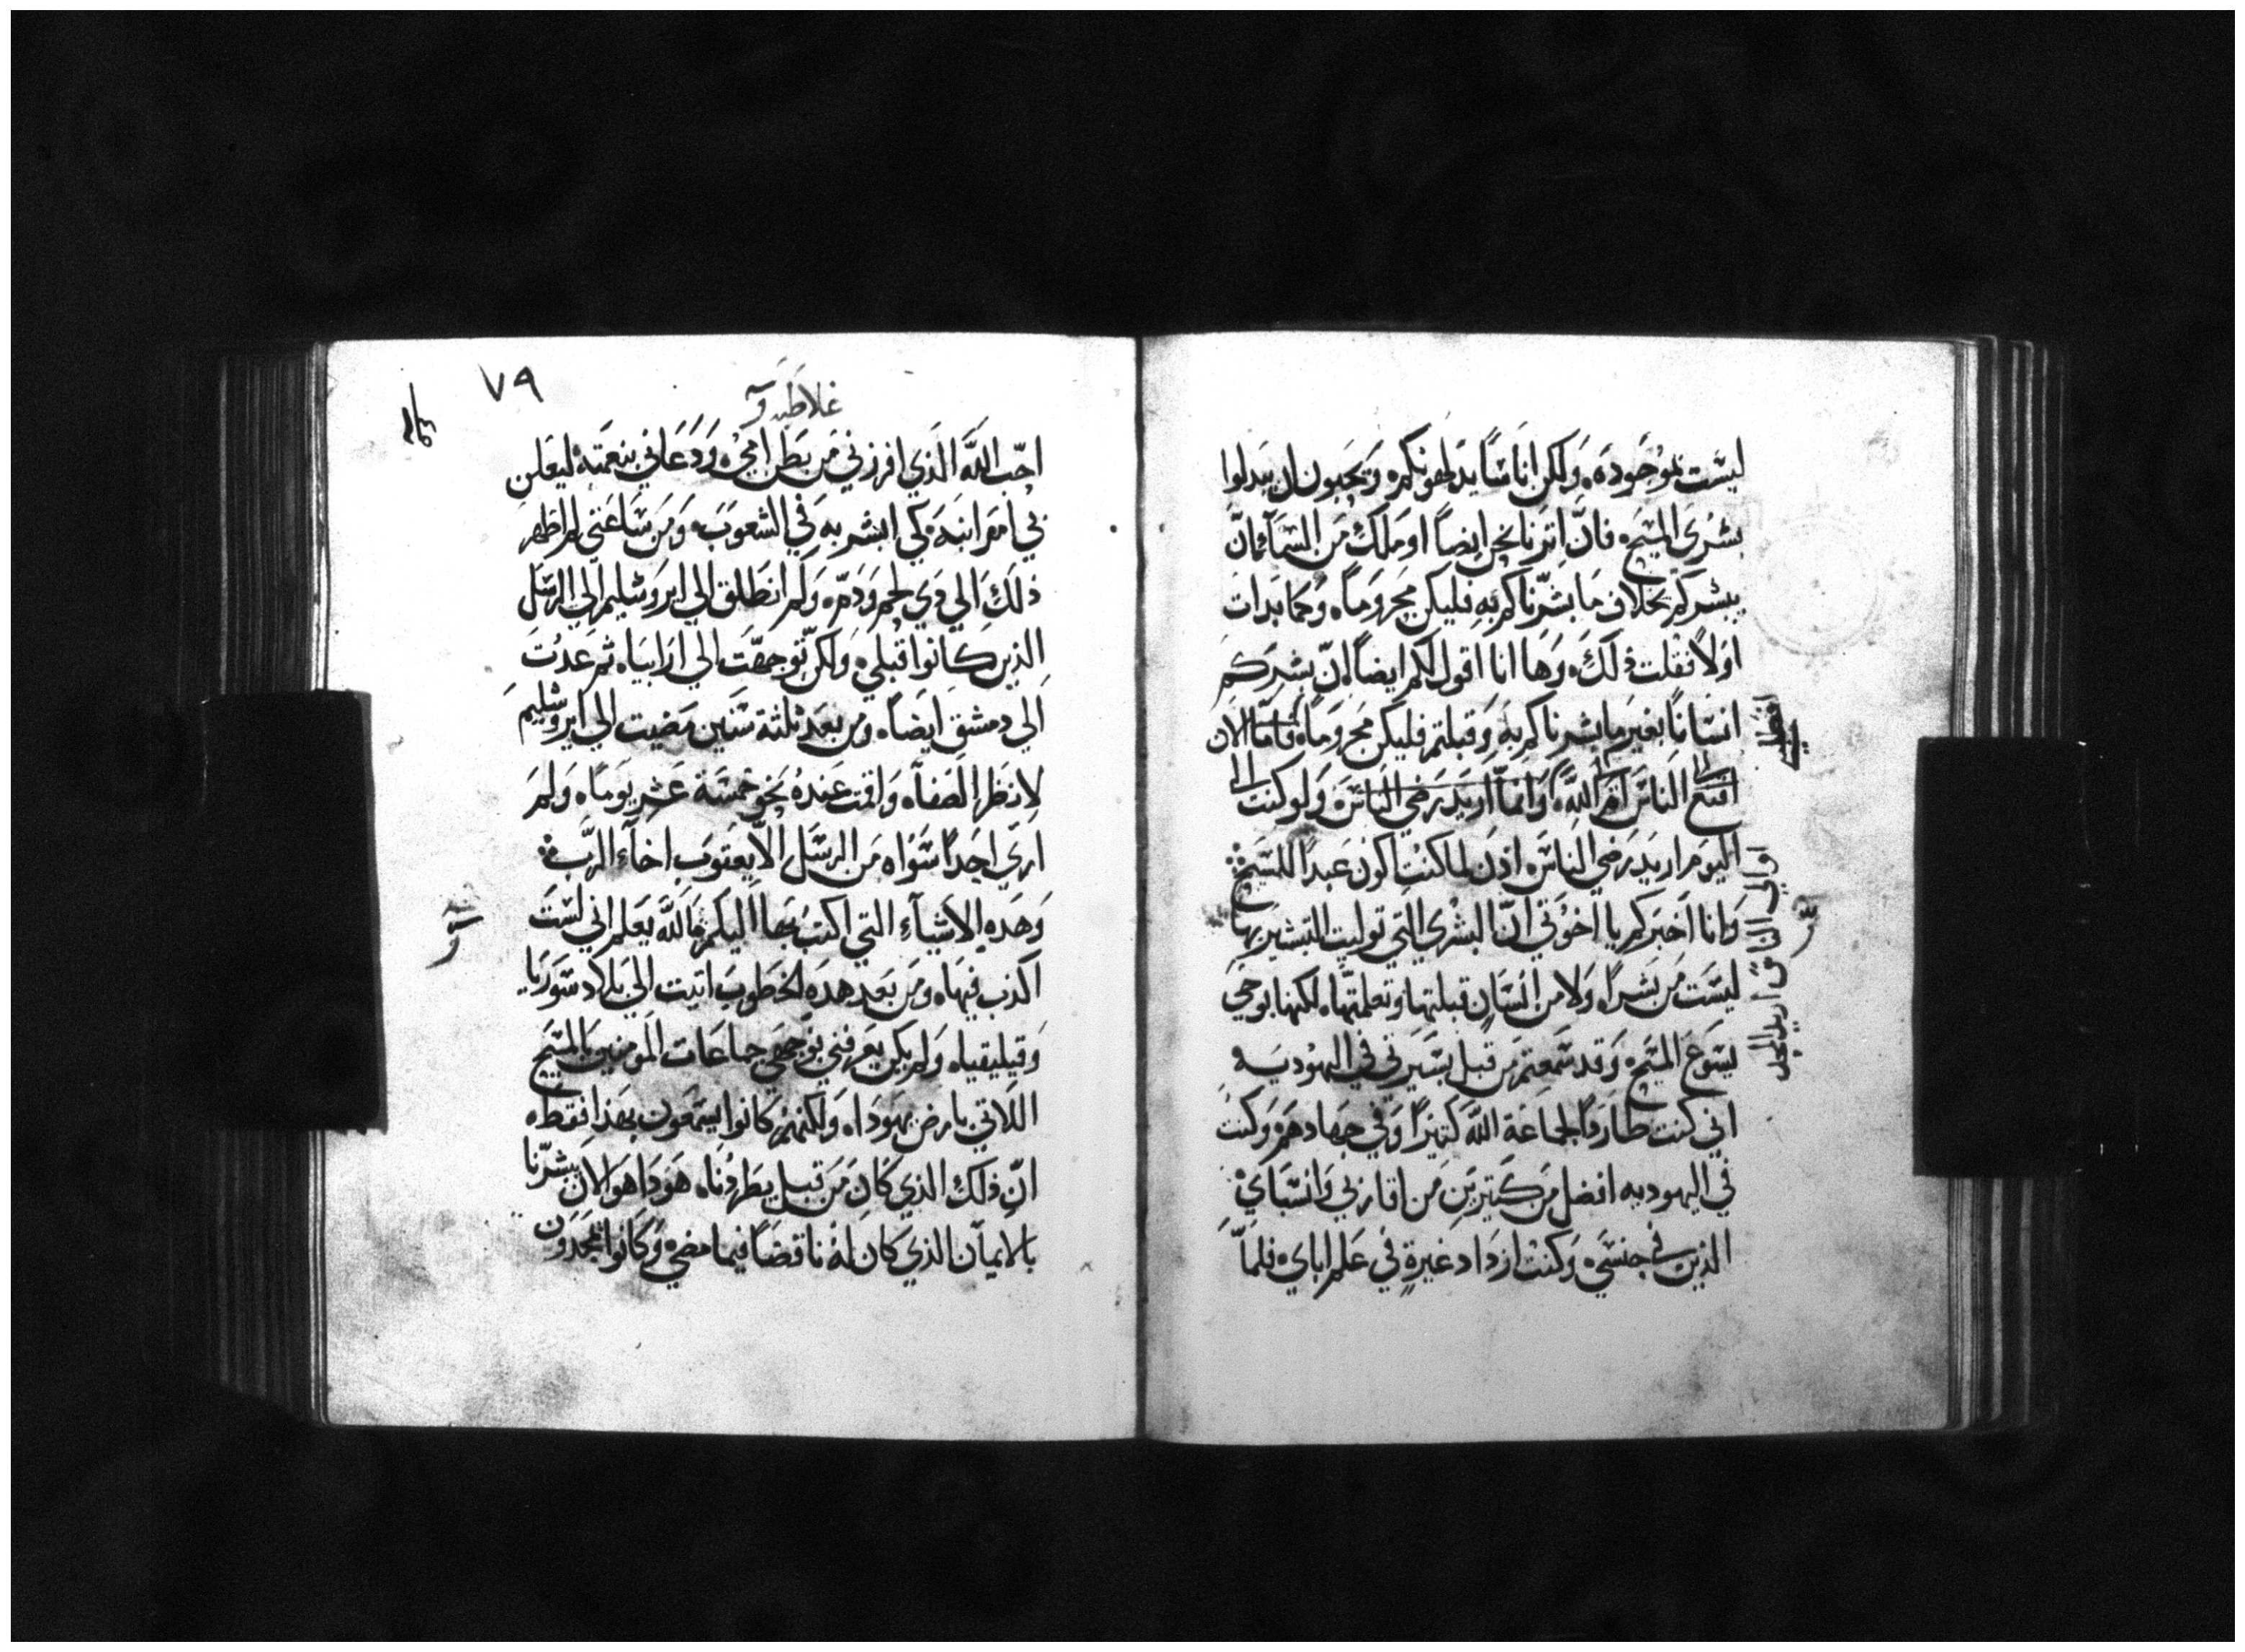 ليست بموجوده ولكن اناسا يدلهونكم ويحبون ان يبدلوا
بشرى المسيح فان اتزنا نحن ايضا او ملك من السمآء بان
يبشركم بخلاف ما بشرناكم به فليكن محروما وكما بدات
اولا فقلت ذلك وها انا اقول لكم ايضا ان بشركم
انسانا بغير ما بشرناكم به وقبلتم فليكن محروما فاما الان
اقنع الناس ام الله او انما اريد رضي الناس ولو كنت الى
اليوم اريد رضي الناس اذن لما كنت اكون عبدا للمسيح
وانا اخبركم يا اخوتي ان البشري التي توليت التبشير بها
ليست من بشرا ولا من انسان قبلتها وتعلمتها لكنها بوحي
يسوع المسيح وقد سمعتم من قبل بسيرتي في اليهوديه
اني كنت طاردا لجماعة الله كثيرا وفي جهادهم وكنت
في اليهوديه افضل من كتيرين من اقاربي وانسباي
الذين في جنسي وكنت ازداد غيرة في علم اباي فلما
اوالي الناس اريد المحل
٧٩
غلاطيه
احب الله الذي افرزني من بطن امي ودعاني بنعمته ليعلن
بي امر ابنه كي ابشر به في الشعوب ومن ساعتي لم اظهر
ذلك الي دي لحم ودم ولم انطلق الي ايروشليم الي الرسل
الذين كانوا قبلي ولكن توجهت الي ارابياه ثم عدت
الي دمشق ايضا ومن بعد ثلثة سنين مضيت الي ايروشليم
لانظر الصفاه واقمت عنده نحو خمسة عشر يوما ولم
اري احدا سواه من الرسل الا يعقوب اخآء الرب
وهده الاشيآء التي اكتب بها اليكم فالله يعلم اني لست
اكذب فيها ومن بعد هده الخطوب اتيت الي بلاد سوريا
وقيليقياه ولم يكن يعرفني بوجهي جماعات المومنين بالمسيح
اللاتي بارض يهودا ولكنهم كانوا يسمعون بهذا فقط
ان ذلك الذي كان من قبل يطردنا هودا هو الان يبشرنا
بالايمان الذي كان له ناقضا فيما مضي وكانوا يمجدون